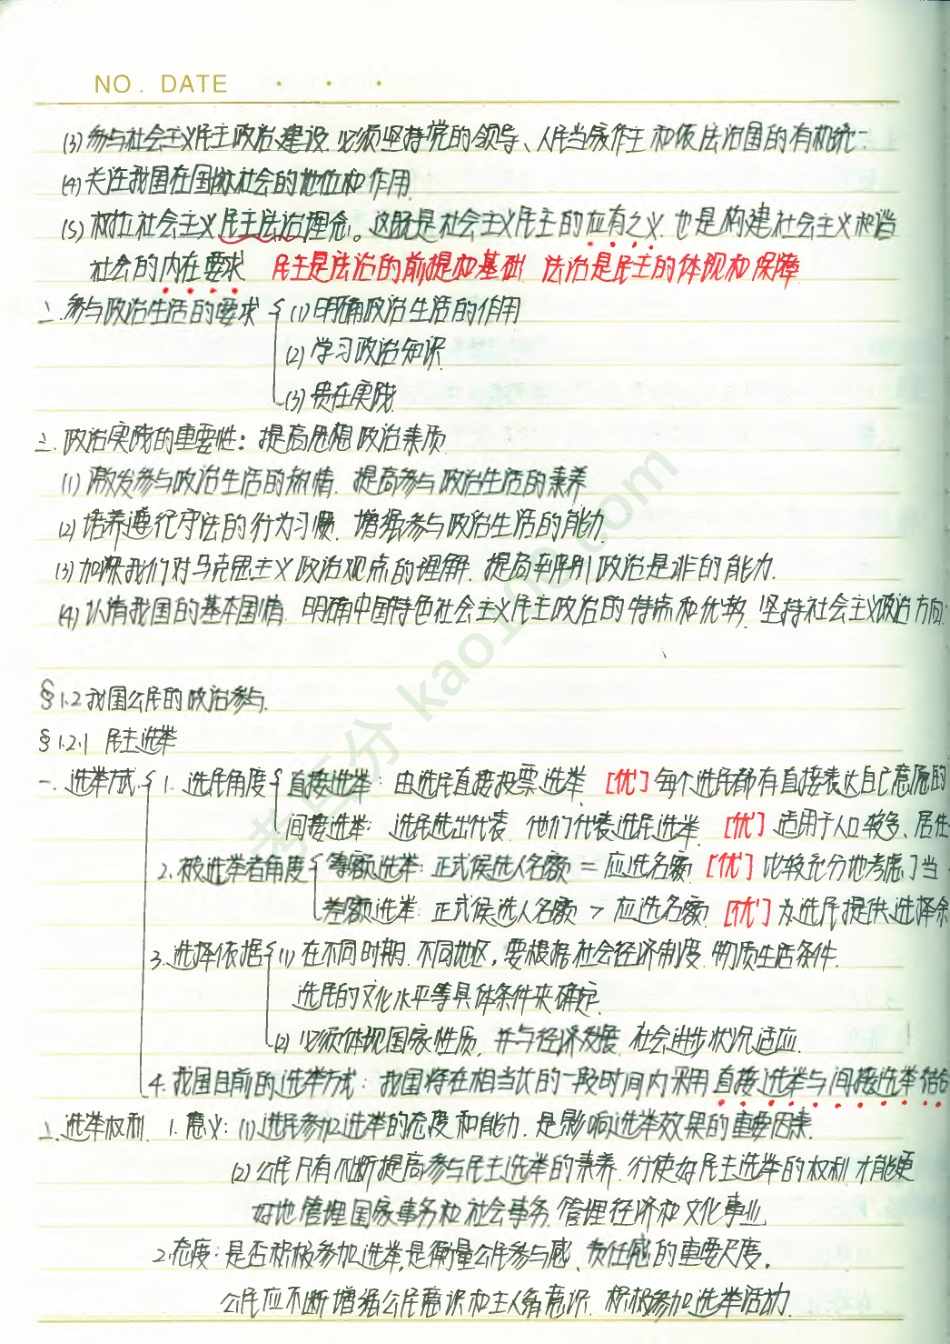 NO. DATE
(3)参与社会主义民主政治建设.必须坚持党的领导、人民当家作主和依法治国的有机统一
(4)关注我国在国际社会的地位和作用.
(5)树立社会主义民主法治理念。这既是社会主义民主的应有之义.也是构建社会主义和谐
社会的内在要求 民主是法治的前提和基础 法治是民主的体现和保障
二.参与政治生活的要求 (1)明确政治生活的作用
(2)学习政治知识
(3)贵在实践
三.政治实践的重要性:提高思想政治素质
(1)激发参与政治生活的热情.提高参与政治生活的素养
(2)培养遵纪守法的行为习惯.增强参与政治生活的能力.
(3)加深我们对马克思主义政治观点的理解.提高辨别政治是非的能力.
(4)认清我国的基本国情.明确中国特色社会主义民主政治的特点和优势.坚持社会主义政治方向
§1.2我国公民的政治参与.
§1.2.1 民主选举
一.选举方式 1.选民角度 直接选举:由选民直接投票选举.[优]每个选民都有直接表达自己意愿的
间接选举:选民选出代表.他们代表选民选举.[优]适用于人口较多、居住
2.被选举者角度 等额选举:正式候选人名额=应选名额.[优]比较充分地考虑了当
差额选举:正式候选人名额>应选名额.[优]为选民提供选择余
3.选择依据 (1)在不同时期.不同地区,要根据社会经济制度.物质生活条件.
选民的文化水平等具体条件来确定.
(2)必须体现国家性质.并与经济发展.社会进步状况适应.
4.我国目前的选举方式:我国将在相当长的一段时间内采用直接选举与间接选举结合
二.选举权利 1.意义:(1)选民参加选举的态度和能力.是影响选举效果的重要因素.
(2)公民只有不断提高参与民主选举的素养.行使好民主选举的权利.才能更
好地管理国家事务和社会事务.管理经济和文化事业.
2.态度:是否积极参加选举,是衡量公民参与感、责任感的重要尺度.
公民应不断增强公民意识和主人翁意识.积极参加选举活动.
考百分 kao100.com